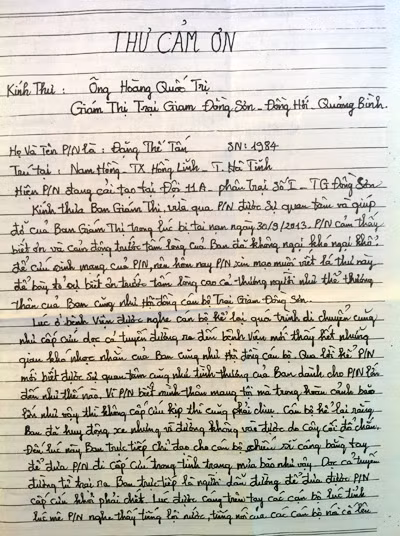 THƯ CẢM ƠN
Kính Thư : Ông Hoàng Quốc Trị
Giám Thị Trại Giam Đồng Sơn - Đồng Hới - Quảng Bình.
Họ Và Tên P/N là : Đặng Thế Tấn SN: 1984
Trú tại : Nam Hồng - TX Hồng Lĩnh - T. Hà Tĩnh
Hiện P/N đang cải tạo tại Đội 11A - phân Trại Số I - TG Đồng Sơn
Kính thưa Ban Giám Thị, vừa qua P/N được Sự quan tâm và giúp
đỡ của Ban Giám Thị trong lúc bị tai nạn ngày 30/9/2013. P/N Cảm thấy
biết ơn và cảm động trước tấm lòng của Ban đã không ngại khó ngại khổ
để cứu sinh mạng của P/N, nên hôm nay P/N xin mạo muội viết lá thư này
để bày tỏ sự biết ơn trước tấm lòng cao Cả - thương người như thể thương
thân của Ban cũng như Hội đồng cán bộ Trại Giam - Đồng Sơn.
Lúc ở bệnh viện được nghe cán bộ kể lại quá trình di chuyển cũng
như cấp cứu dọc cả tuyến đường ra đến bệnh viện mới thấy hết những
gian khó nhọc nhằn của Ban cũng như Hội đồng cán bộ. Qua lời kể P/N
mới biết được Sự quan tâm cũng như tình thương của Ban dành cho P/N lớn
đến như thế nào. Vì P/N biết mình thân mang tội mà trong hoàn cảnh bão
lớn như vậy thì không cấp cứu kịp thì cũng phải chịu. Cán bộ kể lại rằng
Ban đã huy động xe nhưng vì đường không vào được do cây cối đổ chắn.
Đến lúc này Ban trực tiếp chỉ đạo cho cán bộ khiêng cáng bằng tay
để đưa P/N đi Cấp Cứu trong tình trạng mưa bão như vậy. Dọc cả tuyến
đường từ trại ra Ban trực tiếp là người dẫn đường để đưa được P/N
cấp cứu khỏi phải chết. Lúc được cáng trên tay các cán bộ lúc tỉnh
lúc mê P/N nghe thấy tiếng lội nước, tiếng nói của các cán bộ nói cố lên